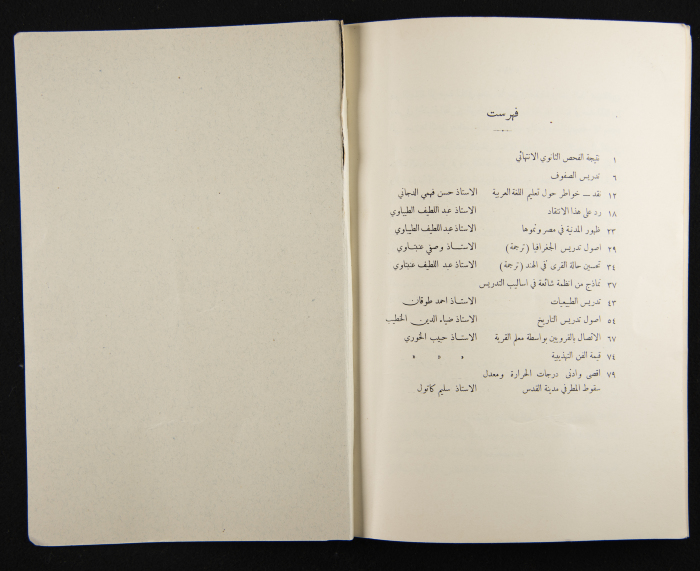 فهرست
١ نتيجة الفحص الثانوي الانتهائي
٦ تدريس الصفوف
١٢ نقد — خواطر حول تعليم اللغة العربية الاستاذ حسن فهمي الدجاني
١٨ رد على هذا الانتقاد الاستاذ عبد اللطيف الطيباوي
٢٣ ظهور المدنية في مصر ونموها الاستاذ عبد اللطيف الطيباوي
٢٩ اصول تدريس الجغرافيا (ترجمة) الاستاذ وصفي عنبتاوي
٣٤ تحسين حالة القرى في الهند (ترجمة) الاستاذ عبد اللطيف عنبتاوي
٣٧ نماذج من انظمة شائعة في اساليب التدريس
٤٣ تدريس الطبيعيات الاستاذ احمد طوقان
٥٤ اصول تدريس التاريخ الاستاذ ضياء الدين الخطيب
٦٧ الاتصال بالقرويين بواسطة معلم القرية الاستاذ حبيب الخوري
٧٤ قيمة الفن التهذيبية » » »
٧٩ اقصى وادنى درجات الحرارة ومعدل
سقوط المطر في مدينة القدس الاستاذ سليم كاتول